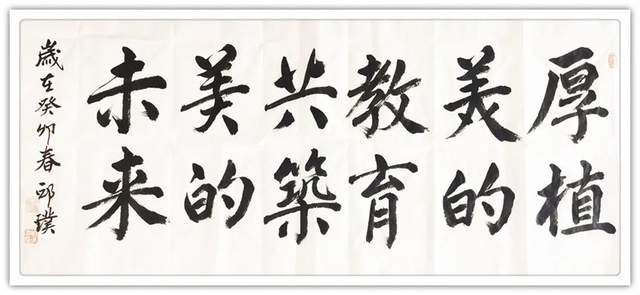 厚植
美的
教育
共築
美的
未来
歲在癸卯春邱璞